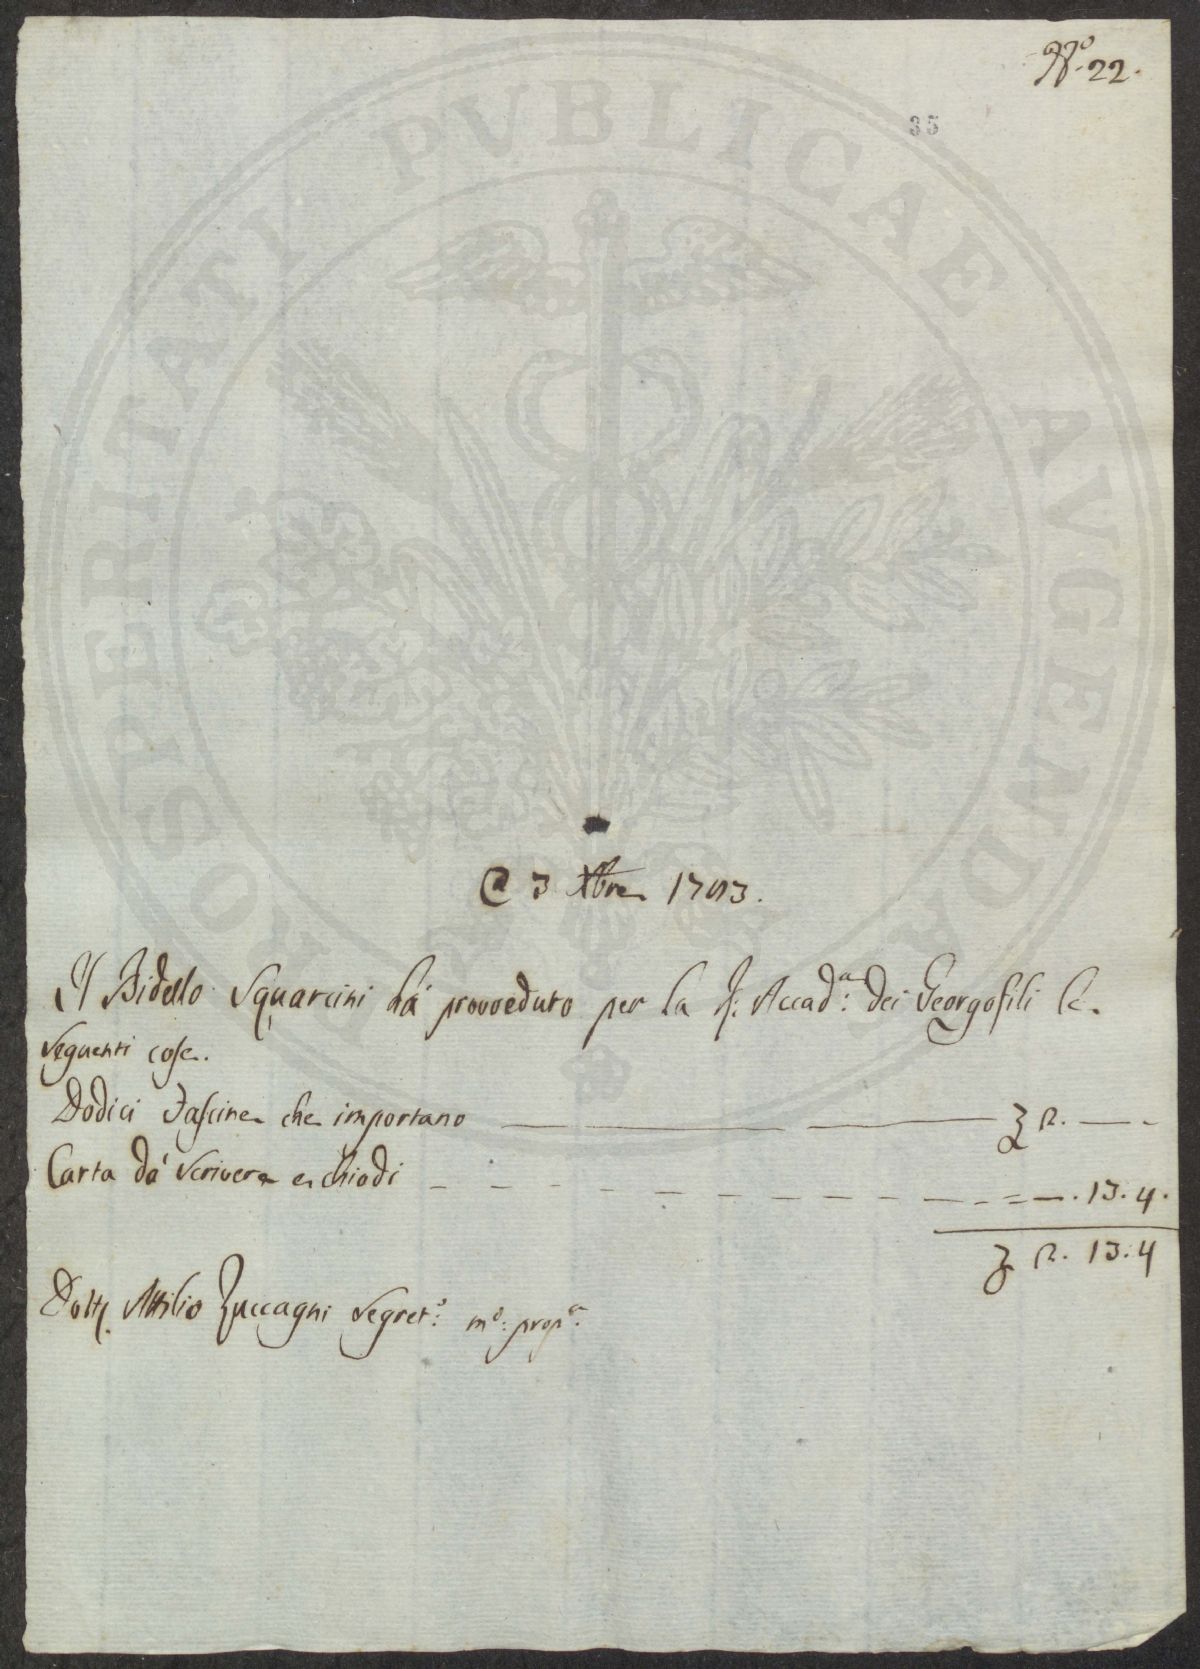 N.º 22.
35
PROSPERITATI PVBLICAE AVGENDAE
@ 3 Xbre 1793.
Il Bidello Squarcini há provveduto per la R: Accad.ª: dei Georgofili le
seguenti cose.
Dodici Fascine che importano — — ʒ 2. — -
Carta dá scrivere e chiodi - - - - - - - - - - - = —. 13. 4.
ʒ 2. 13. 4
Dott. Attilio Zuccagni Segret.º: m.º: prop.ª: